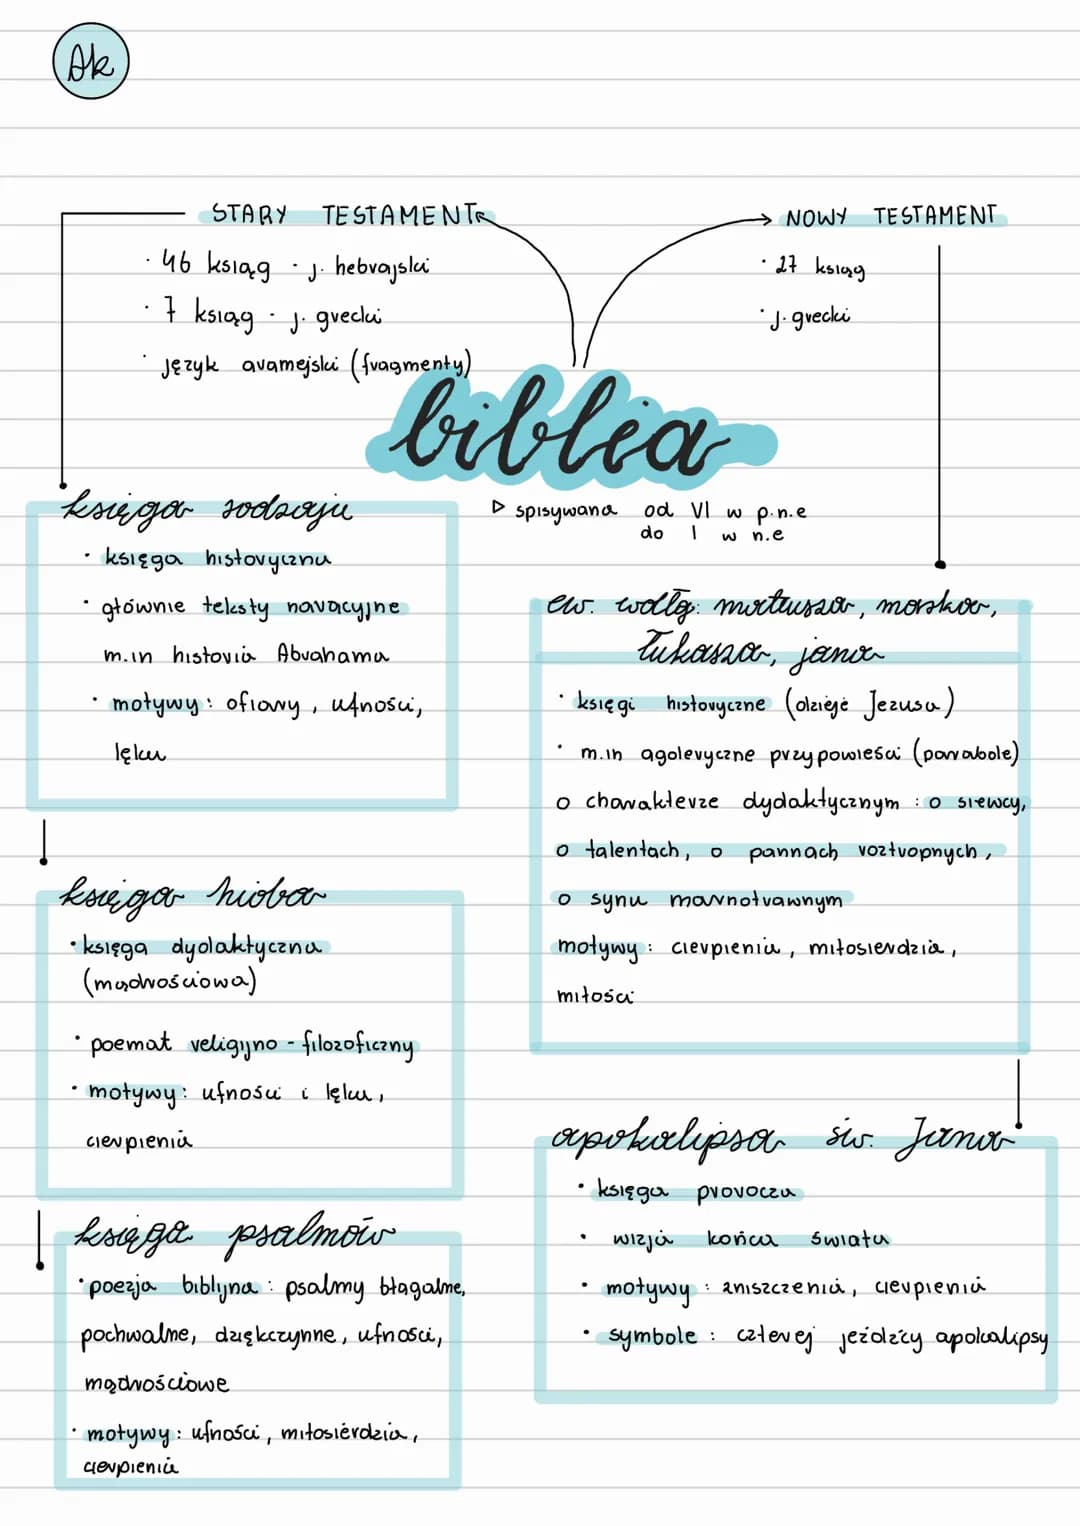 Ak
STARY TESTAMENT
· 46 ksiąg - j. hebrajski
· 7 ksiąg - j. grecki
· język aramejski (fragmenty)
NOWY TESTAMENT
· 27 ksiąg
· j. grecki
biblia
▷ spisywana od VI w p.n.e
do I w n.e
księga rodzaju
· księga historyczna
· głównie teksty naracyjne
m.in historia Abrahama
· motywy: ofiary, ufności,
lęku
księga hioba
· księga dydaktyczna
(mądrościowa)
· poemat religijno - filozoficzny
· motywy: ufności i lęku,
cierpienia
księga psalmów
· poezja biblijna: psalmy błagalne,
pochwalne, dziękczynne, ufności,
mądrościowe
· motywy: ufności, miłosierdzia,
cierpienia
ew. wdłg: mateusza, marka,
łukasza, jana
· księgi historyczne (dzieje Jezusa)
· m.in agoleryczne przypowieści (parabole)
o charakterze dydaktycznym: o siewcy,
o talentach, o pannach roztropnych,
o synu marnotrawnym
motywy: cierpienia, miłosierdzia,
miłości
apokalipsa św. Jana
· księga prorocza
· wizja końca świata
· motywy: zniszczenia, cierpienia
· symbole: czterej jeźdźcy apokalipsy